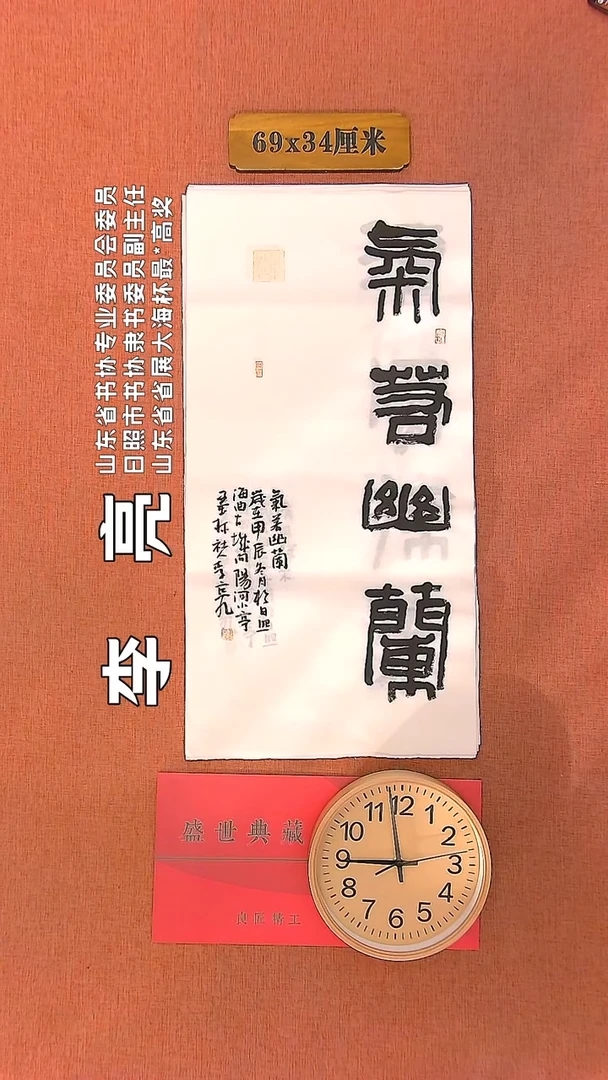 69x34厘米
山东省书协专业委员会委员
日照市书协隶书委员副主任
山东省省展大海杯最*高奖
李 亮
氣若幽蘭
氣若幽蘭
歲在甲辰冬月於日照
海曲古城向陽河小亭
李亮
盛世典藏
良匠精工
12
1
2
3
4
5
6
7
8
9
10
11